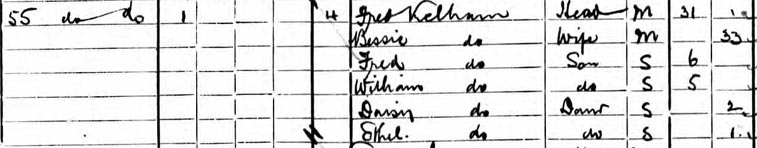 55 do do 1 4 Fred Kelham Head M 31
Bessie do Wife M 33
Fred do Son S 6
William do do S 5
Daisy do Daur S 2
Ethel. do do S 1